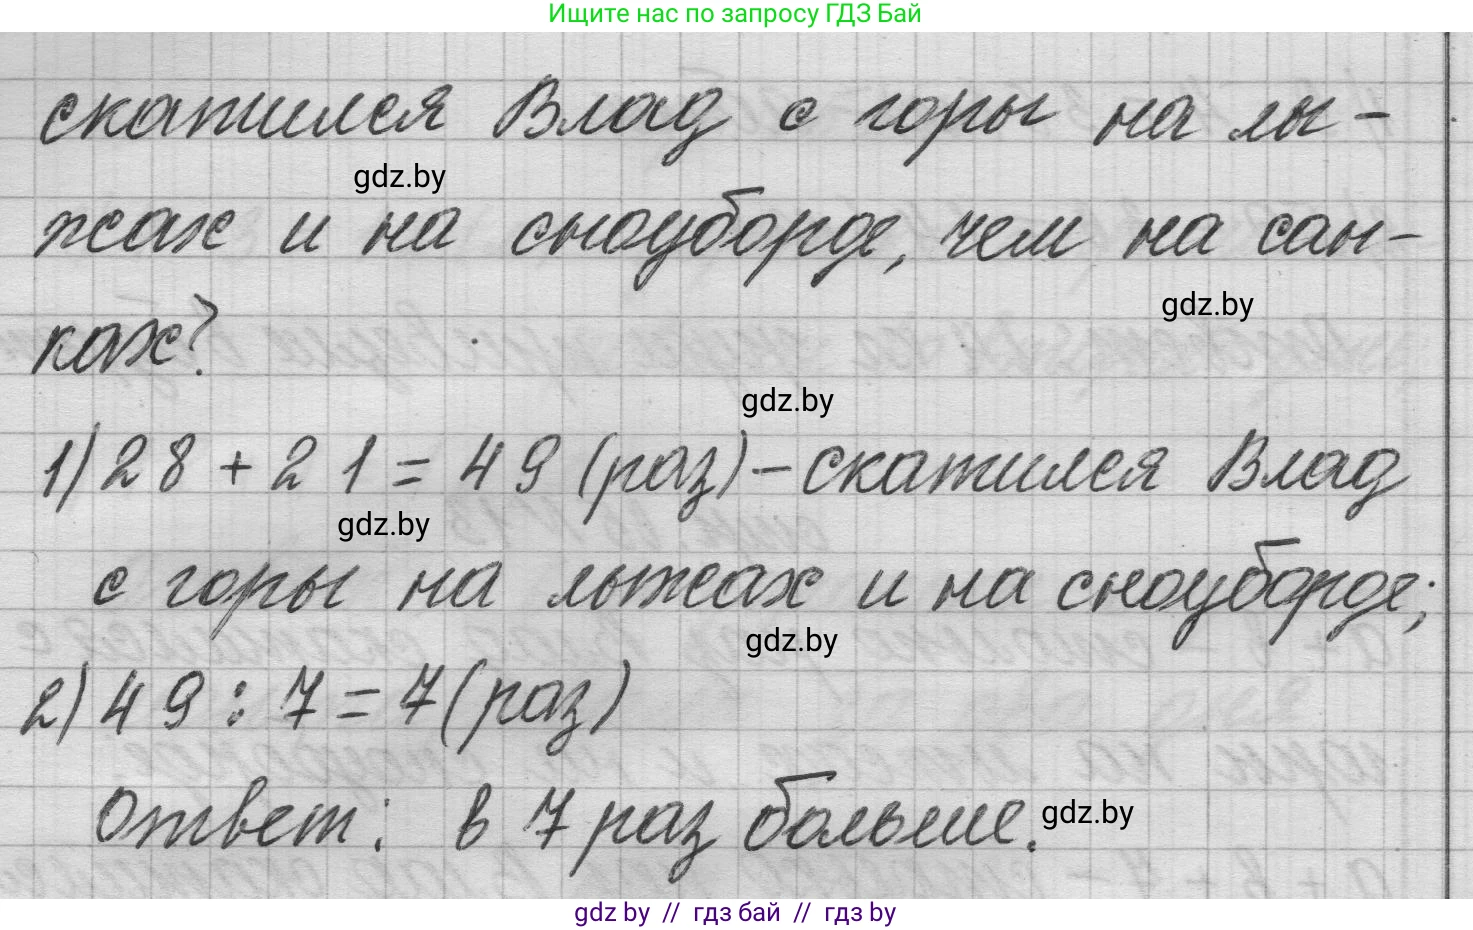 Ищите нас по запросу ГДЗ Бай
скатился Влад с горы на лы-
gdz.by
жах и на сноуборде, чем на сан-
gdz.by
ках?
gdz.by
1) 28 + 21 = 49 (раз) - скатился Влад
gdz.by
с горы на лыжах и на сноуборде;
gdz.by
2) 49 : 7 = 7 (раз)
Ответ: в 7 раз больше.
gdz.by
gdz by // гдз бай // гдз by